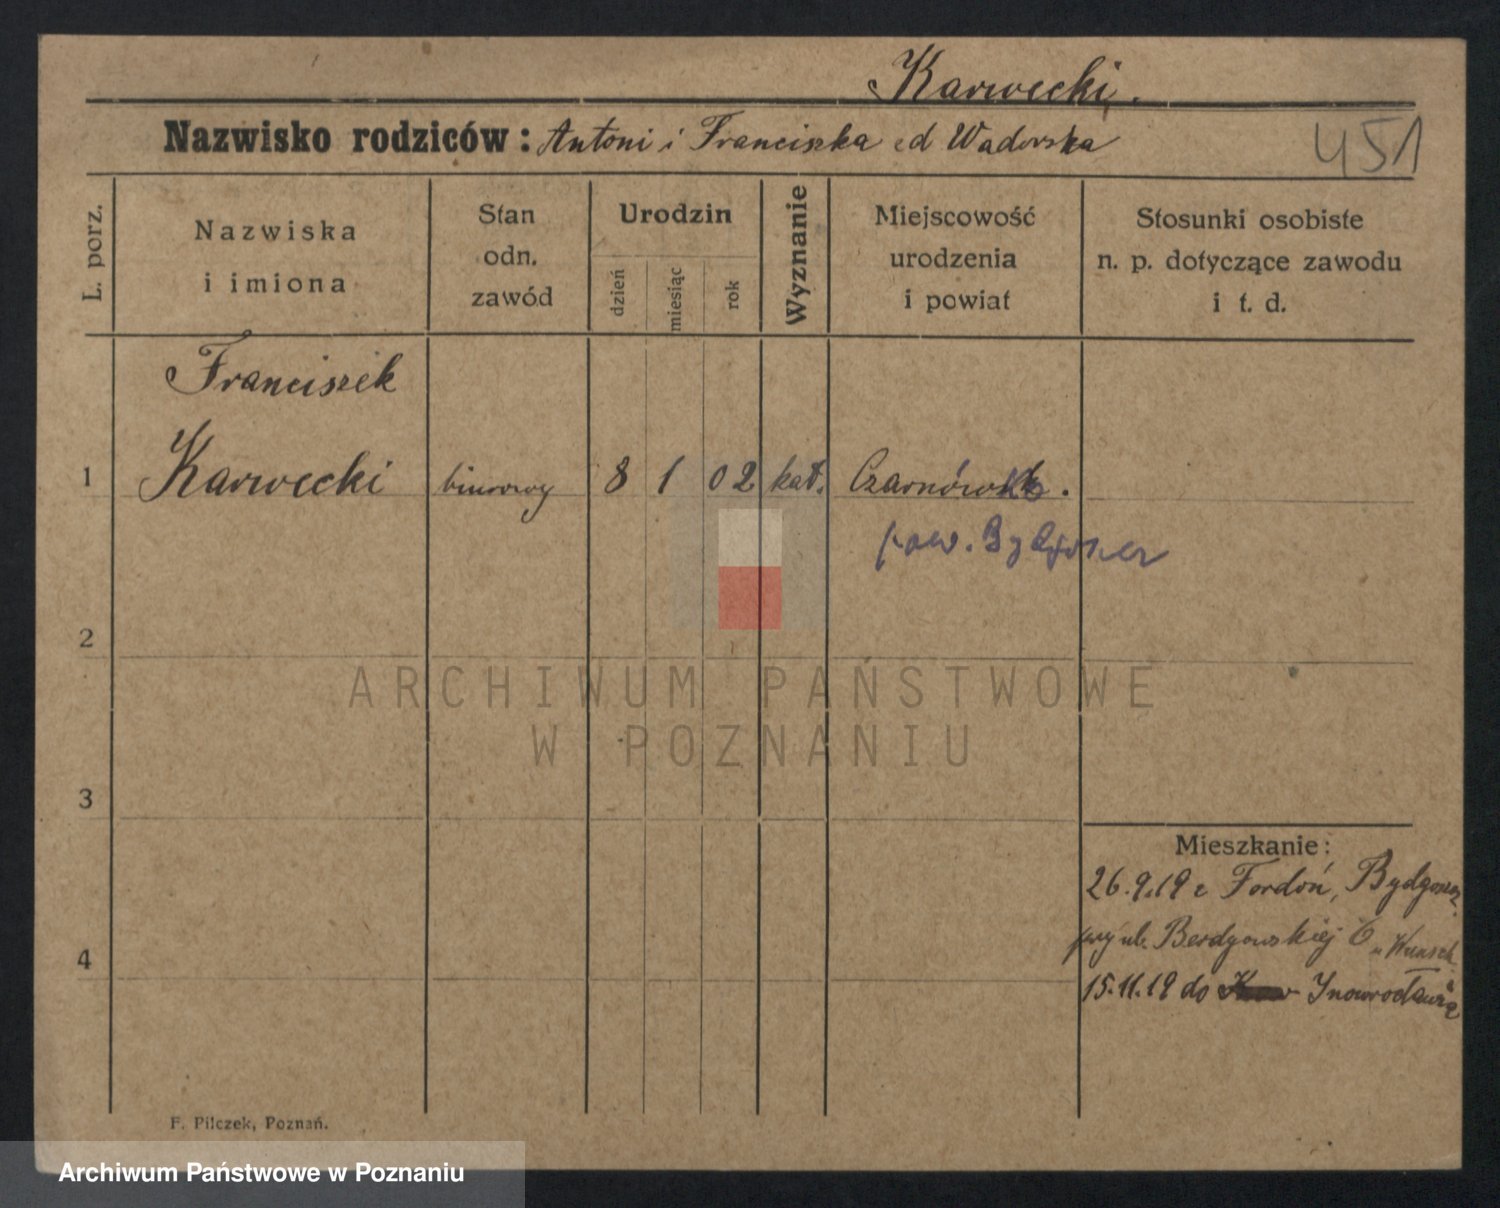 Karwecki.
Nazwisko rodziców: Antoni i Franciszka
451
L. porz.
Nazwiska
i imiona
Stan
odn.
zawód
Urodzin
dzień
miesiąc
rok
Wyznanie
Miejscowość
urodzenia
i powiat
Stosunki osobiste
n. p. dotyczące zawodu
i t. d.
Franciszek
1 Karwecki biurowy 8 1 02 kat.
pow.
2
3
Mieszkanie:
26.9.19 z Fordoń, Bydgoszcz
przy ul.
4
15.11.19 do Inowrocławia
F. Pilczek, Poznań.
ARCHIWUM PAŃSTWOWE
W POZNANIU
Archiwum Państwowe w Poznaniu